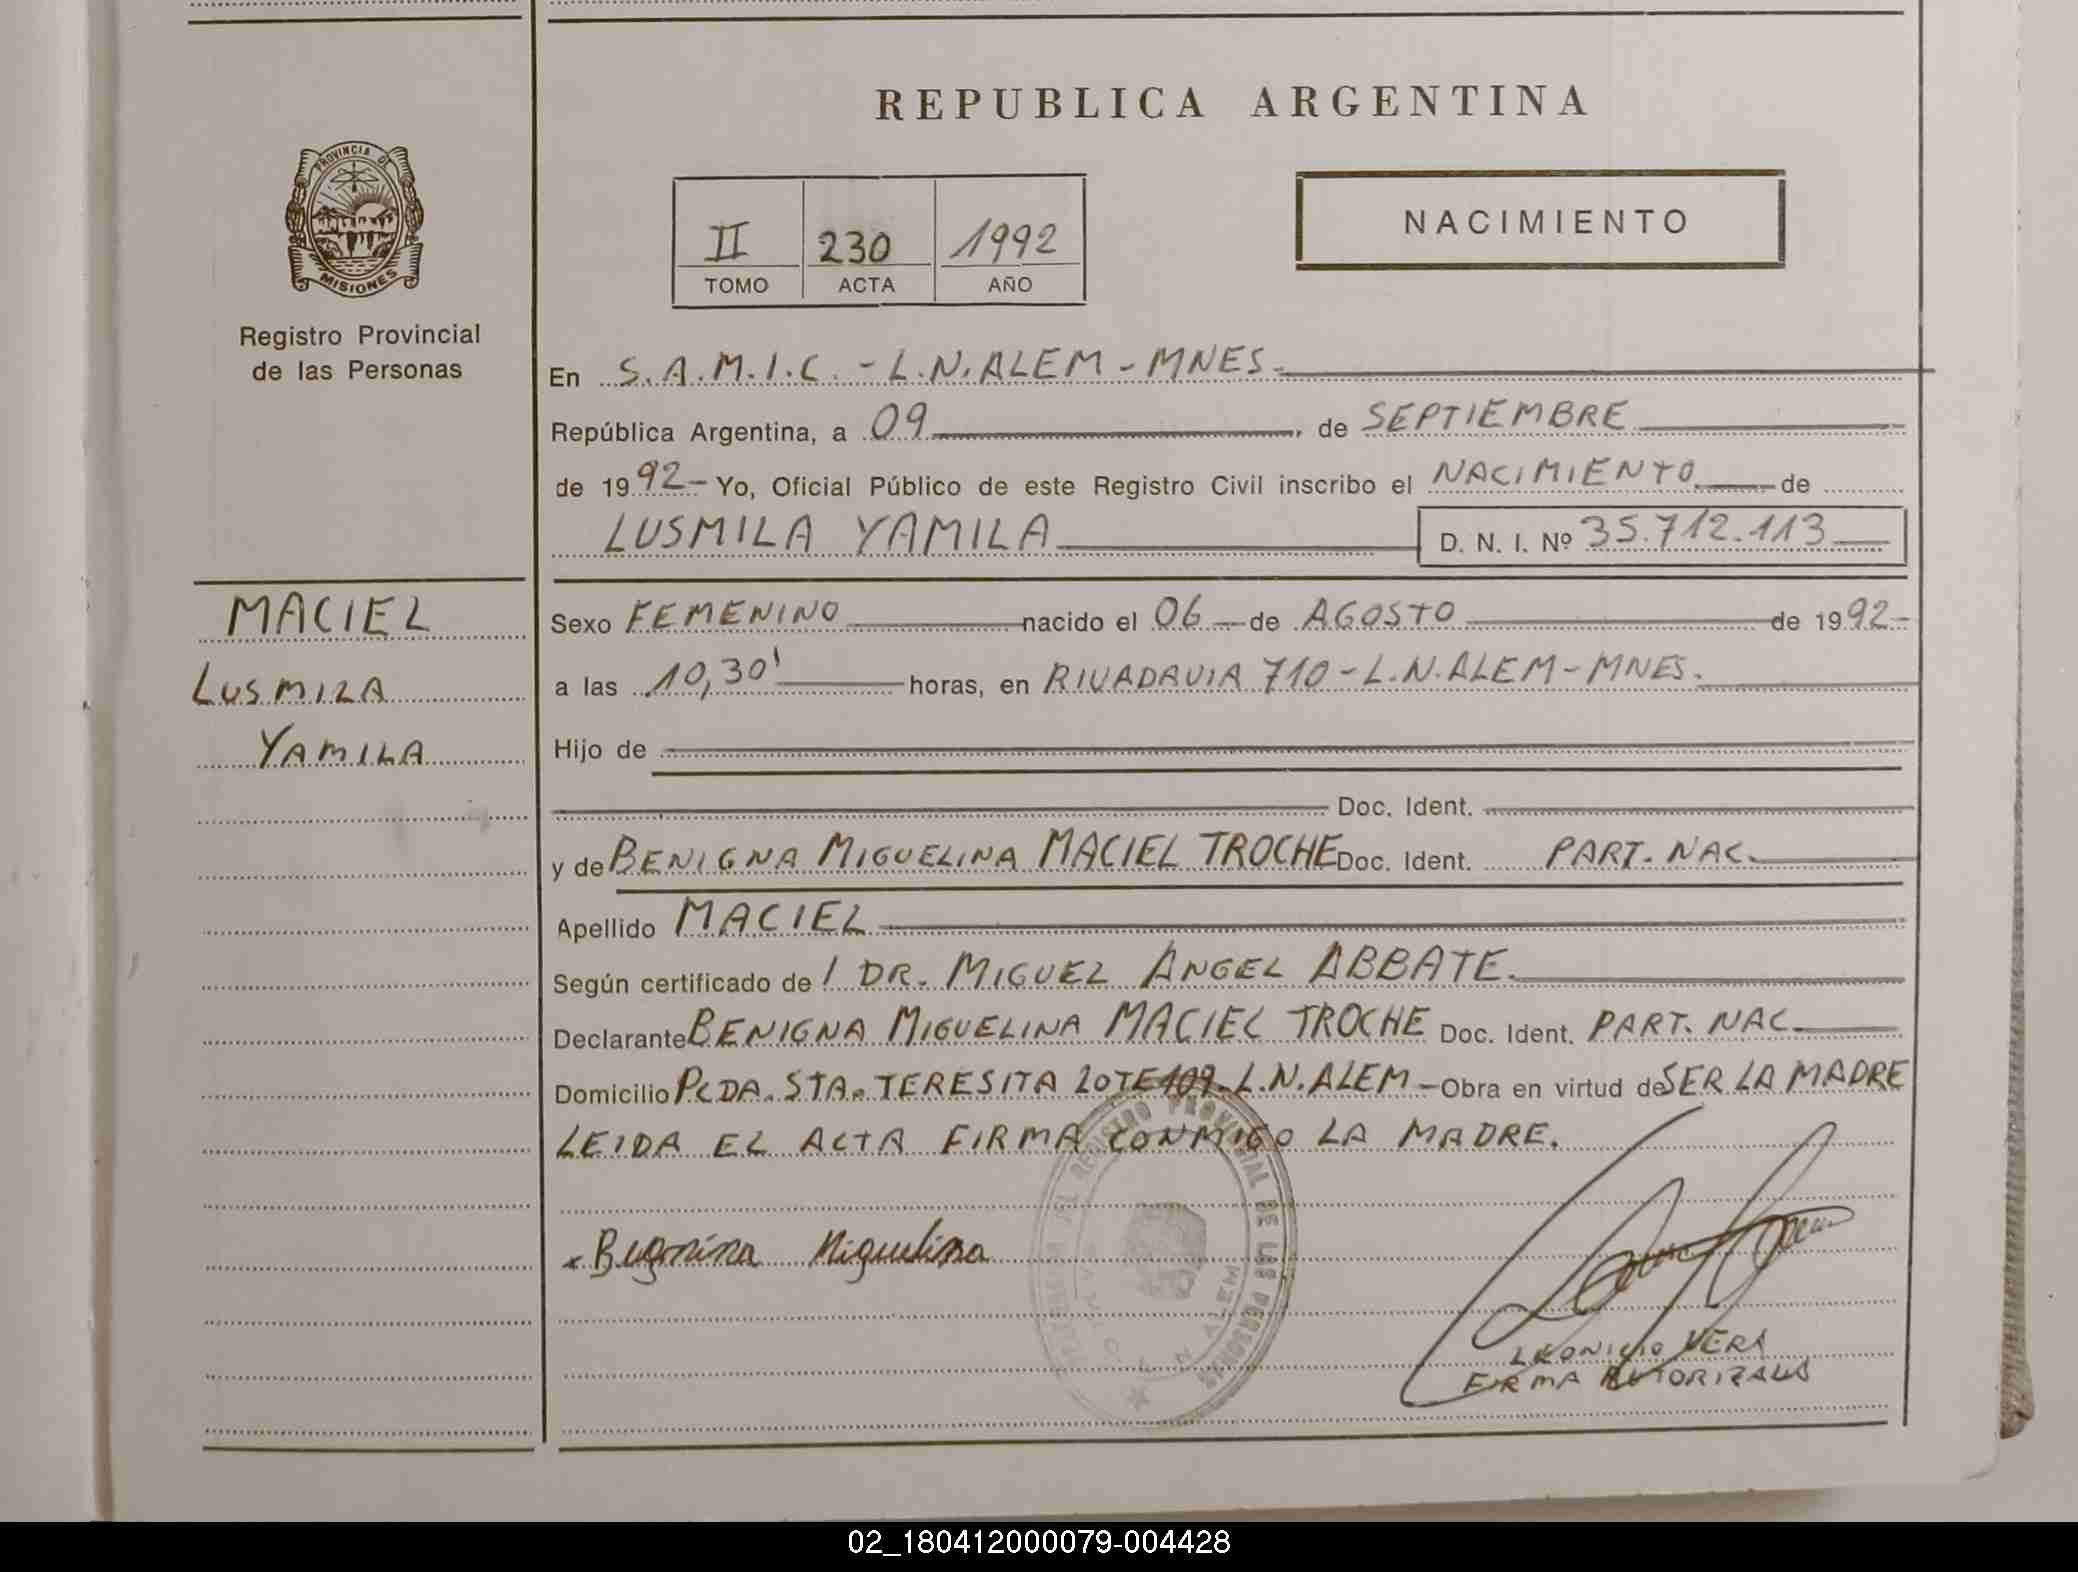 REPUBLICA ARGENTINA
PROVINCIA DE
MISIONES
Registro Provincial
de las Personas
II 230 1992
TOMO ACTA AÑO
NACIMIENTO
En S.A.M.I.C. - L.N. ALEM - MNES.
República Argentina, a 09 de SEPTIEMBRE
de 1992 - Yo, Oficial Público de este Registro Civil inscribo el NACIMIENTO de
LUSMILA YAMILA D. N. I. Nº 35.712.113
MACIEL
LUSMILA
YAMILA
Sexo FEMENINO nacido el 06 de AGOSTO de 1992-
a las 10,30' horas, en RIVADAVIA 710 - L.N. ALEM - MNES.
Hijo de
Doc. Ident.
y de BENIGNA MIGUELINA MACIEL TROCHE Doc. Ident. PART. NAC.
Apellido MACIEL
Según certificado de / DR. MIGUEL ANGEL ABBATE.
Declarante BENIGNA MIGUELINA MACIEL TROCHE Doc. Ident. PART. NAC.
Domicilio PCDA. STA. TERESITA LOTE 109 - L.N. ALEM - Obra en virtud de SER LA MADRE
LEIDA EL ACTA FIRMA CONMIGO LA MADRE.
Miguelina
REGISTRO PROVINCIAL DE LAS PERSONAS
LEONICIO VERA
FIRMA AUTORIZADA
02_180412000079-004428